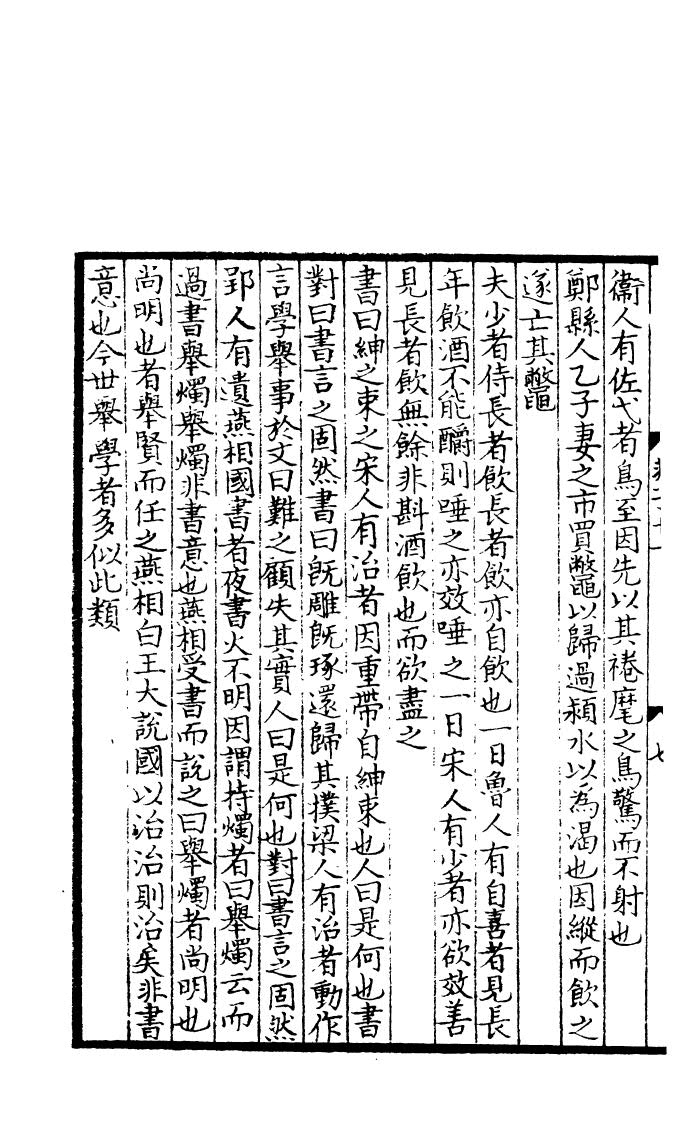 衞人有佐弋者鳥至因先以其裷麾之鳥驚而不射也
鄭縣人乙子妻之市買鼈以歸過潁水以為渴也因縱而飲之
遂亡其鼈
夫少者侍長者飲長者飲亦自飲也一日魯人有自喜者見長
年飲酒不能釂則唾之亦效唾之一日宋人有少者亦欲效善
見長者飲無餘非斟酒飲也而欲盡之
書曰紳之束之宋人有治者因重帶自紳束也人曰是何也書
對曰書言之固然書曰旣雕旣琢還歸其撲梁人有治者動作
言學舉事於文曰難之顧失其實人曰是何也對曰書言之固然
郢人有遺燕相國書者夜書火不明因謂持燭者曰舉燭云而
過書舉燭舉燭非書意也燕相受書而說之曰舉燭者尚明也
尚明也者舉賢而任之燕相白王大說國以治治則治矣非書
意也今世舉學者多似此類
七